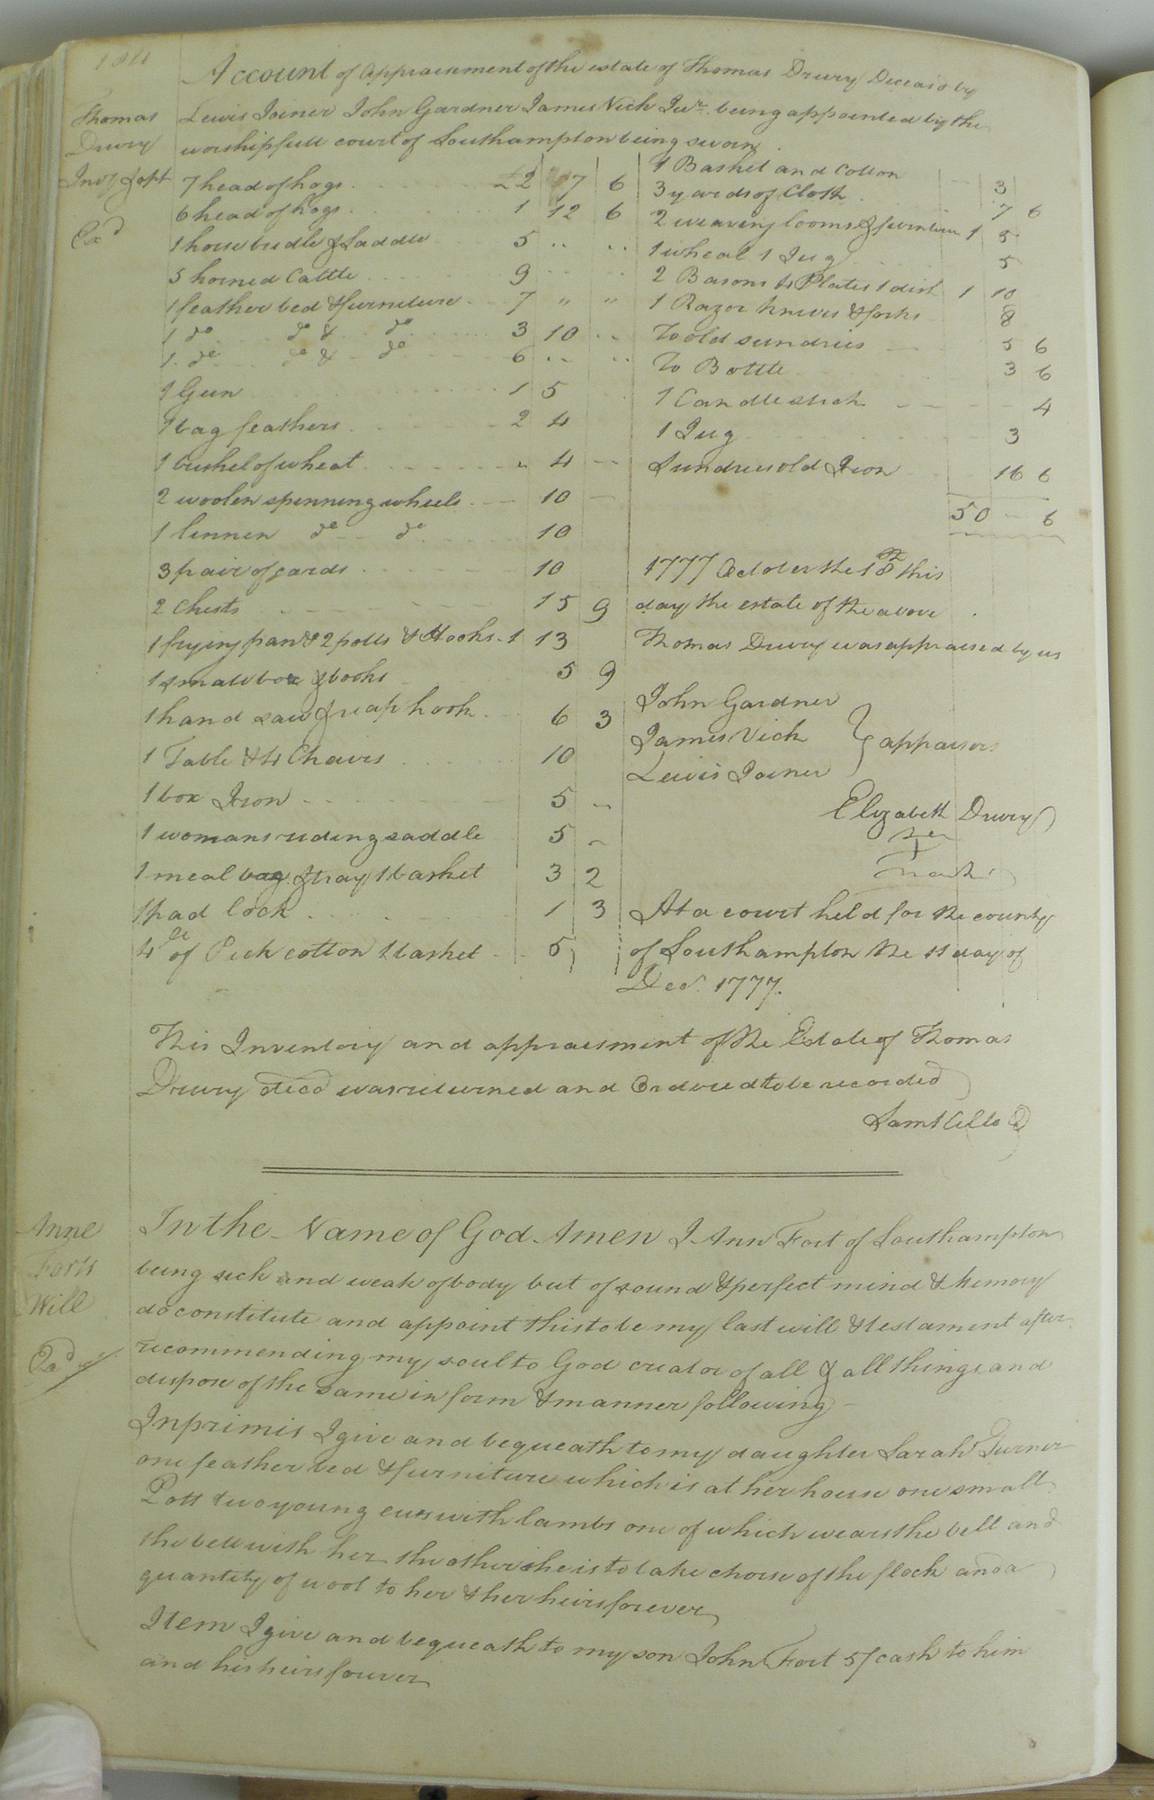 Account of appraisement of the estate of Thomas Drury Deceasd by
Thomas
Drury
Invy & apt
Exd
Lewis Joiner John Gardner James Vick Junr. being appointed by the
worshipfull court of Southampton being sworn
7 head of hogs £2 17 6
6 head of hogs 1 12 6
1 horse bridle & Saddle 5 .. ..
5 horned Cattle 9 .. ..
1 feather bed & furniture 7 " "
1 do do & do 3 10 ..
1 do do & do 6 .. ..
1 Gun 1 5
1 bag feathers 2 4
1 bushel of wheat " 4 --
2 woolen spinning wheels 10 --
1 linnen do do 10
3 pair of cards 10
2 Chests 15 9
1 frying pan & 2 potts & Hooks 1 13
1 small box & books 5 9
1 hand saw & reap hook 6 3
1 Table & 4 Chairs 10
1 box Iron 5 --
1 womans riding saddle 5 -
1 meal bag & tray 1 basket 3 2
1 pad lock 1 3
4 lb of Pick cotton 1 basket 5
1 Basket and Cotton 3
3 yards of Cloth 7 6
2 weaving looms & furniture 1 5
1 wheal 1 Jug 5
2 Basons 4 Plates 1 dish 1 10
1 Razor knives & forks 8
To old sundries 5 6
To Bottle 3 6
1 Candlestick 4
1 Jug 3
Sundries old Iron 16 6
50 - 6
1777 October the 18th this
day the estate of the above
Thomas Drury was appraised by us
John Gardner
James Vick } appaisors
Lewis Joiner
Elizabeth Drury
her
mark
At a court held for the county
of Southampton the 11 day of
Decr. 1777.
This Inventory and appraisment of the Estate of Thomas
Drury decd was returned and Ordered to be recorded
Saml Kello
Anne
Forts
Will
Exd
In the Name of God Amen I Ann Fort of Southampton
being sick and weak of body but of sound & perfect mind & Memory
do constitute and appoint this to be my last will & testament after
recommending my soul to God creator of all & all things and
dispose of the same in form & manner following
Inprimis I give and bequeath to my daughter Sarah Turner
one feather bed & furniture which is at her house one small
Pott two young ews with lambs one of which wears the bell and
the bell with her the other she is to take choise of the flock and a
quantity of wool to her & her heirs forever
Item I give and bequeath to my son John Fort 5/ cash to him
and his heirs forever